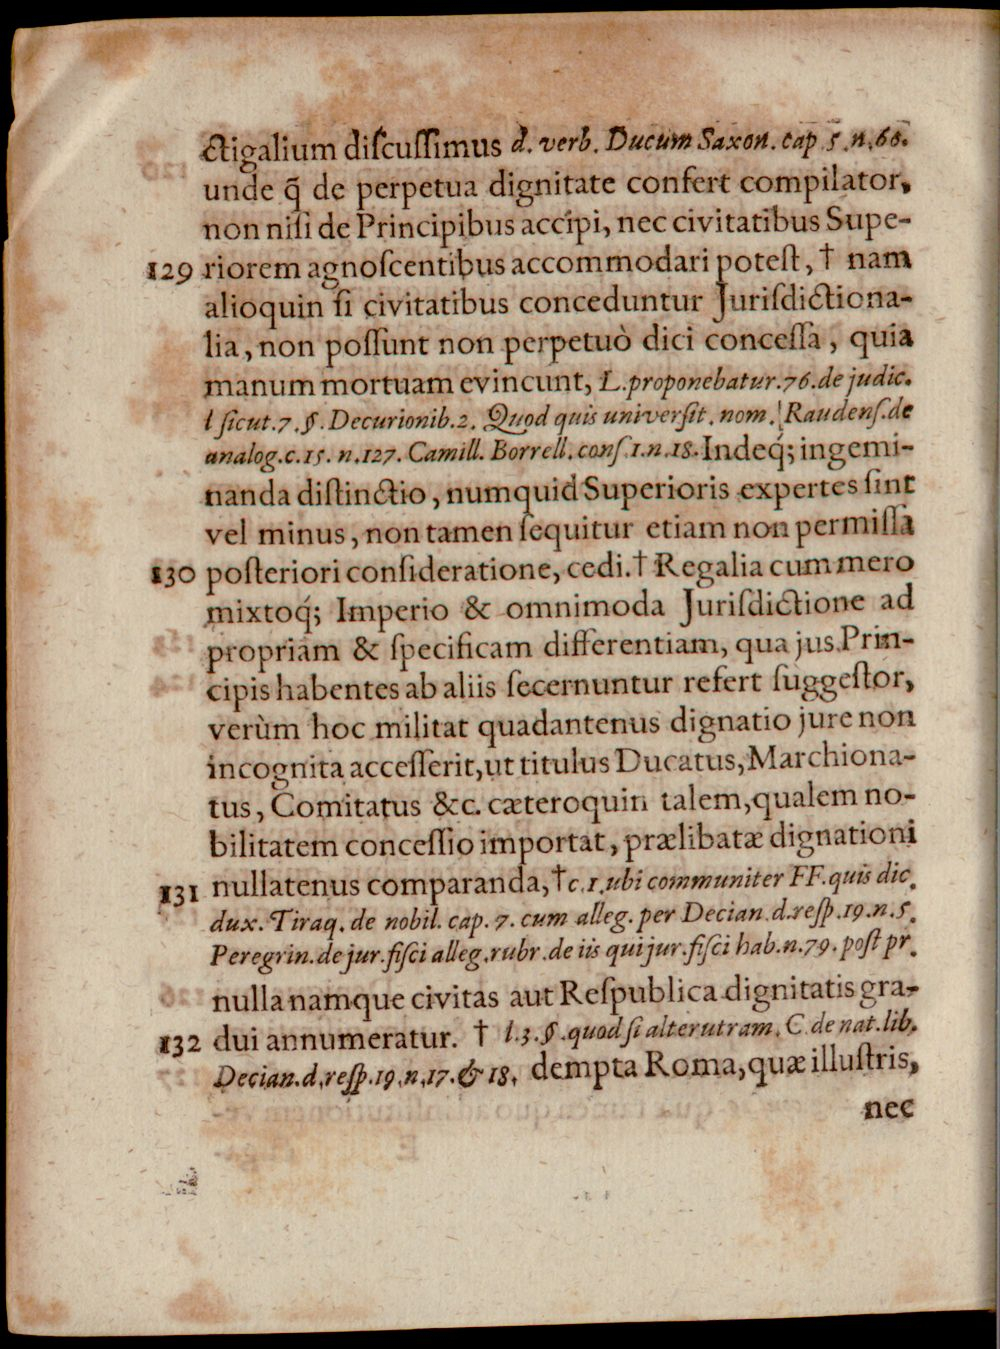 ctigalium diſcuſſimus d. verb. Ducum Saxon. cap 5. n. 60.
unde q̃ de perpetua dignitate confert compilator,
non niſi de Principibus accipi, nec civitatibus Supe-
129 riorem agnoſcentibus accommodari poteſt, † nam
alioquin ſi civitatibus conceduntur Jurisdictiona-
lia, non poſſunt non perpetuò dici conceſſa, quia
manum mortuam evincunt, L. proponebatur. 76. de judic.
l ſicut. 7. §. Decurionib. 2. Quod quis univerſit. nom. Raudenſ. de
analog. c. 15. n. 127. Camill. Borrell. conſ. 1. n. 18. Indeq́; ingemi-
nanda diſtinctio, numquid Superioris expertes ſint
vel minus, non tamen ſequitur etiam non permiſſa
130 poſteriori conſideratione, cedi. † Regalia cum mero
mixtoq́; Imperio & omnimoda Jurisdictione ad
propriam & ſpecificam differentiam, qua jus Prin-
cipis habentes ab aliis ſecernuntur refert ſuggeſtor,
verùm hoc militat quadantenus dignatio jure non
incognita acceſſerit, ut titulus Ducatus, Marchiona-
tus, Comitatus &c. cæteroquin talem, qualem no-
bilitatem conceſſio importat, prælibatæ dignationi
131 nullatenus comparanda, † c. 1. ubi communiter FF. quis dic.
dux. Tiraq. de nobil. cap. 7. cum alleg. per Decian. d. reſp. 19. n. 5.
Peregrin. de jur. fiſci alleg. rubr. de iis qui jur. fiſci hab. n. 79. poſt pr.
nulla namque civitas aut Reſpublica dignitatis gra-
132 dui annumeratur. † l. 3. §. quod ſi alterutram. C. de nat. lib.
Decian. d. reſp. 19. n. 17. & 18. dempta Roma, quæ illuſtris,
nec